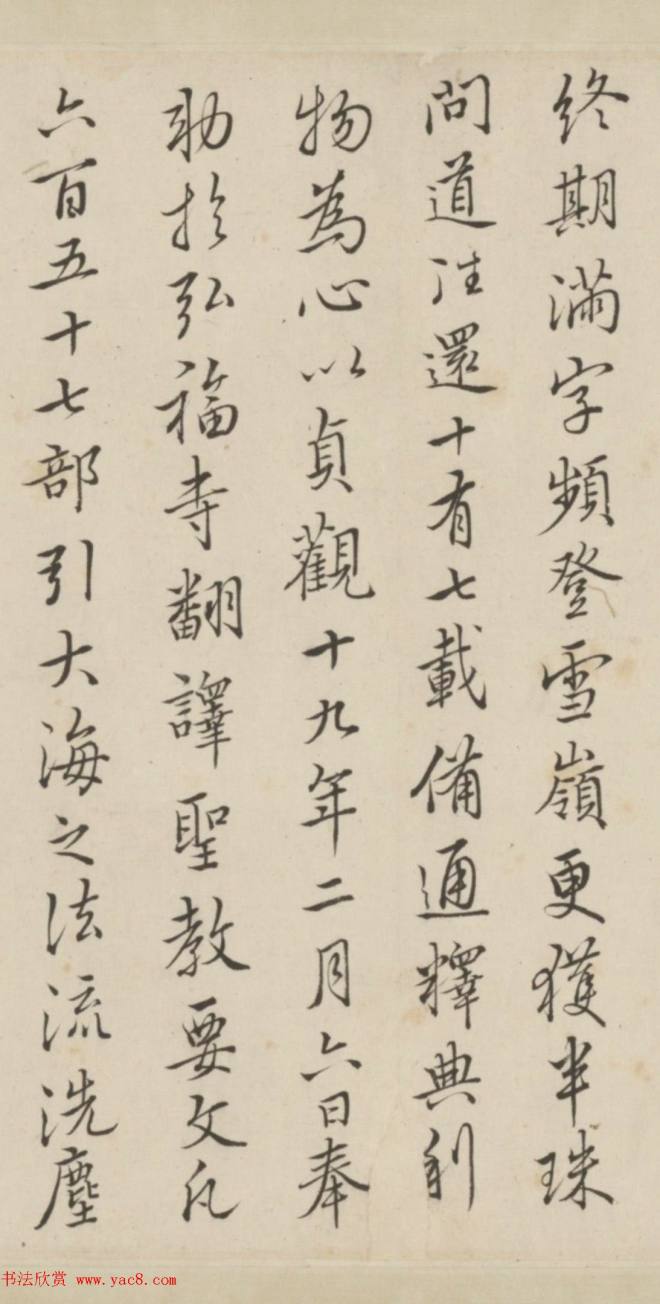 终期满字頻登雪嶺更獲半珠
問道往還十有七載備通釋典利
物為心以貞觀十九年二月六日奉
勅於弘福寺翻譯聖教要文凡
六百五十七部引大海之法流洗塵
书法欣赏 www.yac8.com